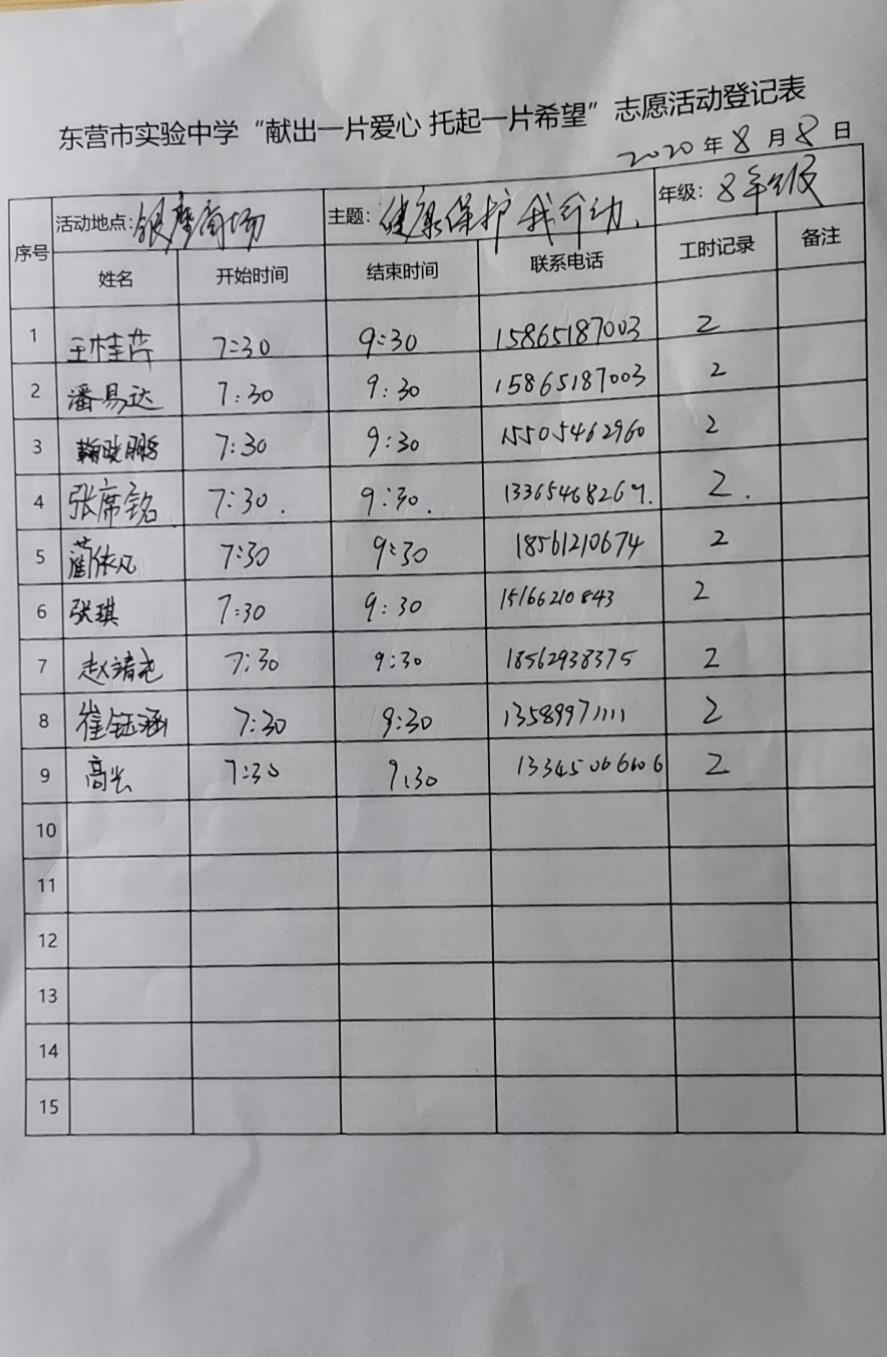 东营市实验中学“献出一片爱心 托起一片希望”志愿活动登记表
2020年8月8日
序号 活动地点:银座商场 主题:健康保护 我行动. 年级:8年级
姓名 开始时间 结束时间 联系电话 工时记录 备注
1 王桂芹 7:30 9:30 15865187003 2
2 潘易达 7:30 9:30 15865187003 2
3 鞠晓鹏 7:30 9:30 15505462960 2
4 张席铭 7:30. 9:30. 13365468267. 2.
5 蔺依凡 7:30 9:30 18561210674 2
6 张琪 7:30 9:30 15166210843 2
7 赵靖尧 7:30 9:30 18562938375 2
8 崔钰涵 7:30 9:30 13589971111 2
9 高 7:30 9:30 13345066606 2
10
11
12
13
14
15